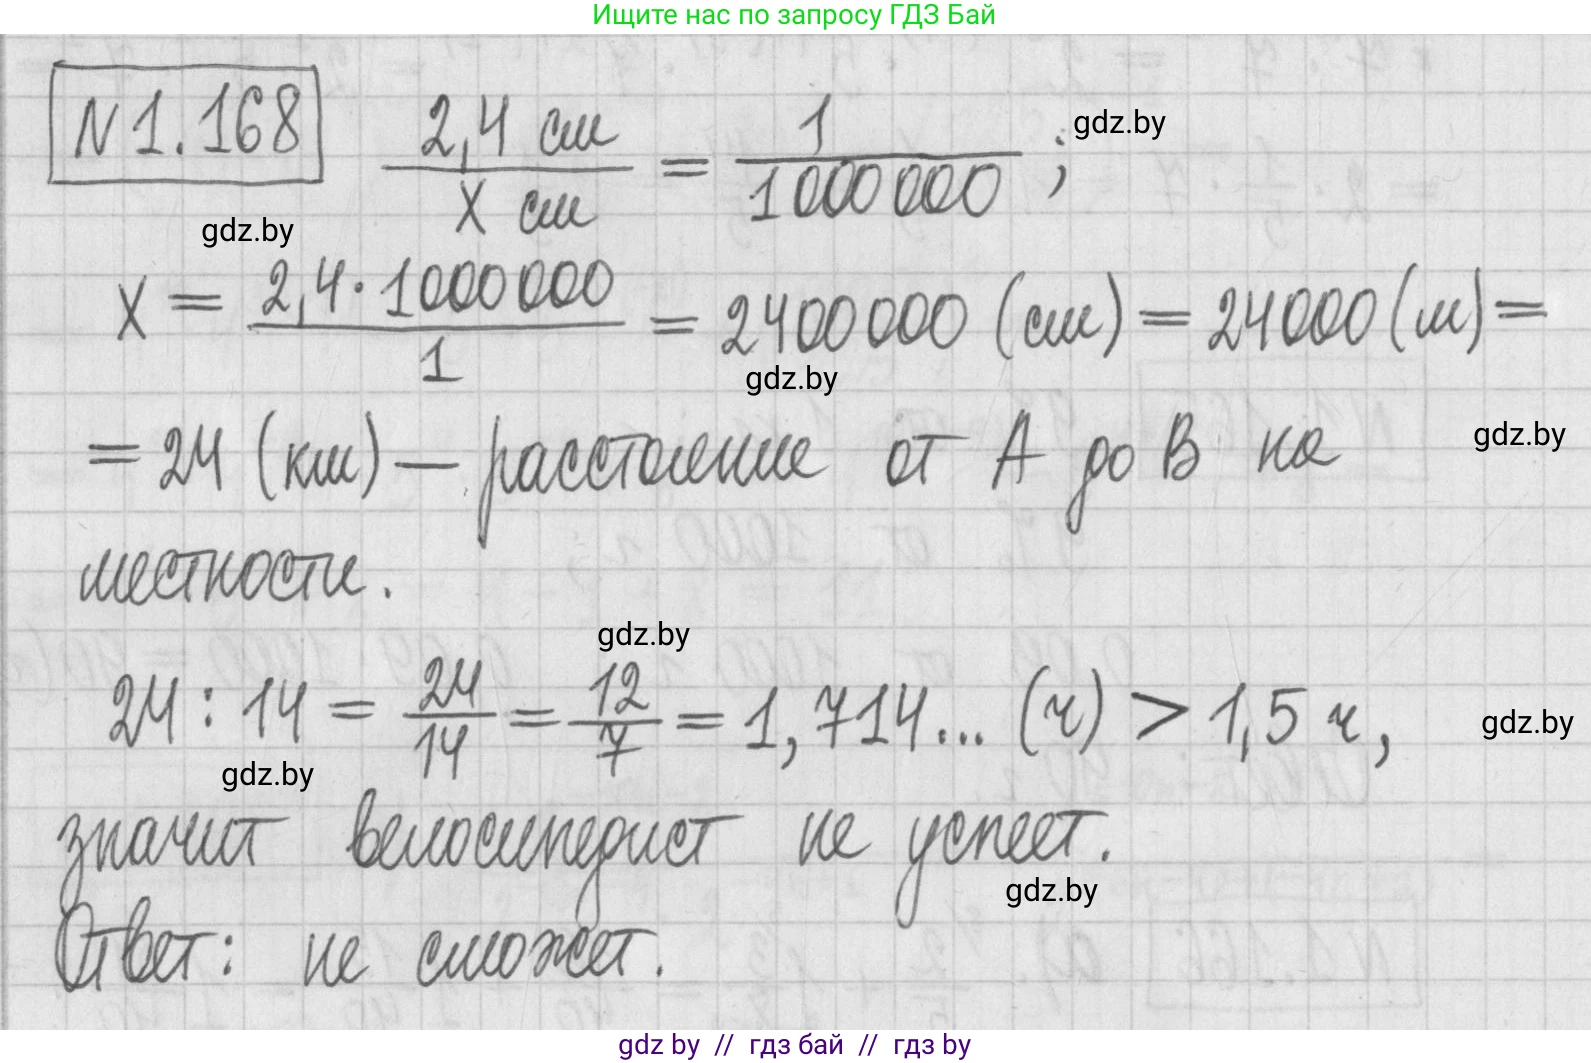 Ищите нас по запросу ГДЗ Бай
N 1.168 2,4 см / x см = 1 / 1000000 ;
gdz.by
gdz.by
x = 2,4 · 1000000 / 1 = 2400000 (см) = 24000 (м) =
gdz.by
= 24 (км) — расстояние от A до B на
gdz.by
местности.
gdz.by
24 : 14 = 24/14 = 12/7 = 1,714... (ч) > 1,5 ч,
gdz.by
gdz.by
значит велосипедист не успеет.
gdz.by
Ответ: не сможет.
gdz by // гдз бай // гдз by